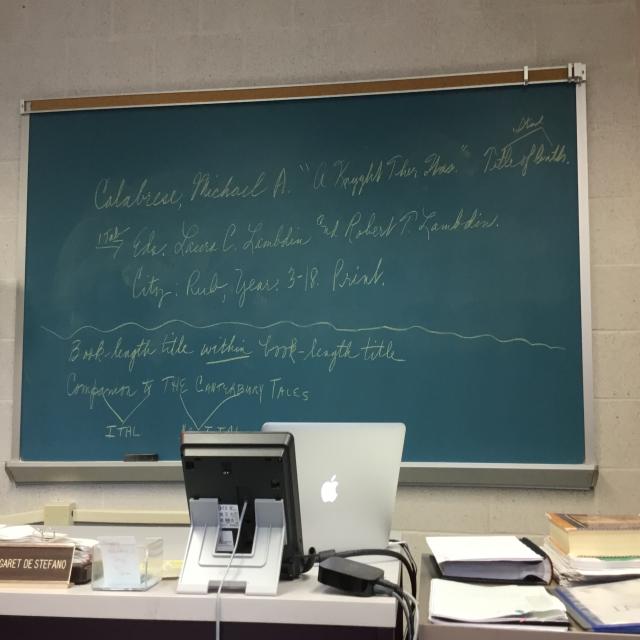 Ital
Calabrese, Michael A. "A Knyght Ther Was." Title of Book.
ITAL Eds. Laura C. Lambdin and Robert T. Lambdin.
City: Pub, Year. 3-18. Print.
Book-length title within book-length title
Companion to THE CANTERBURY TALES
ITAL ITAL
GARET DE STEFANO